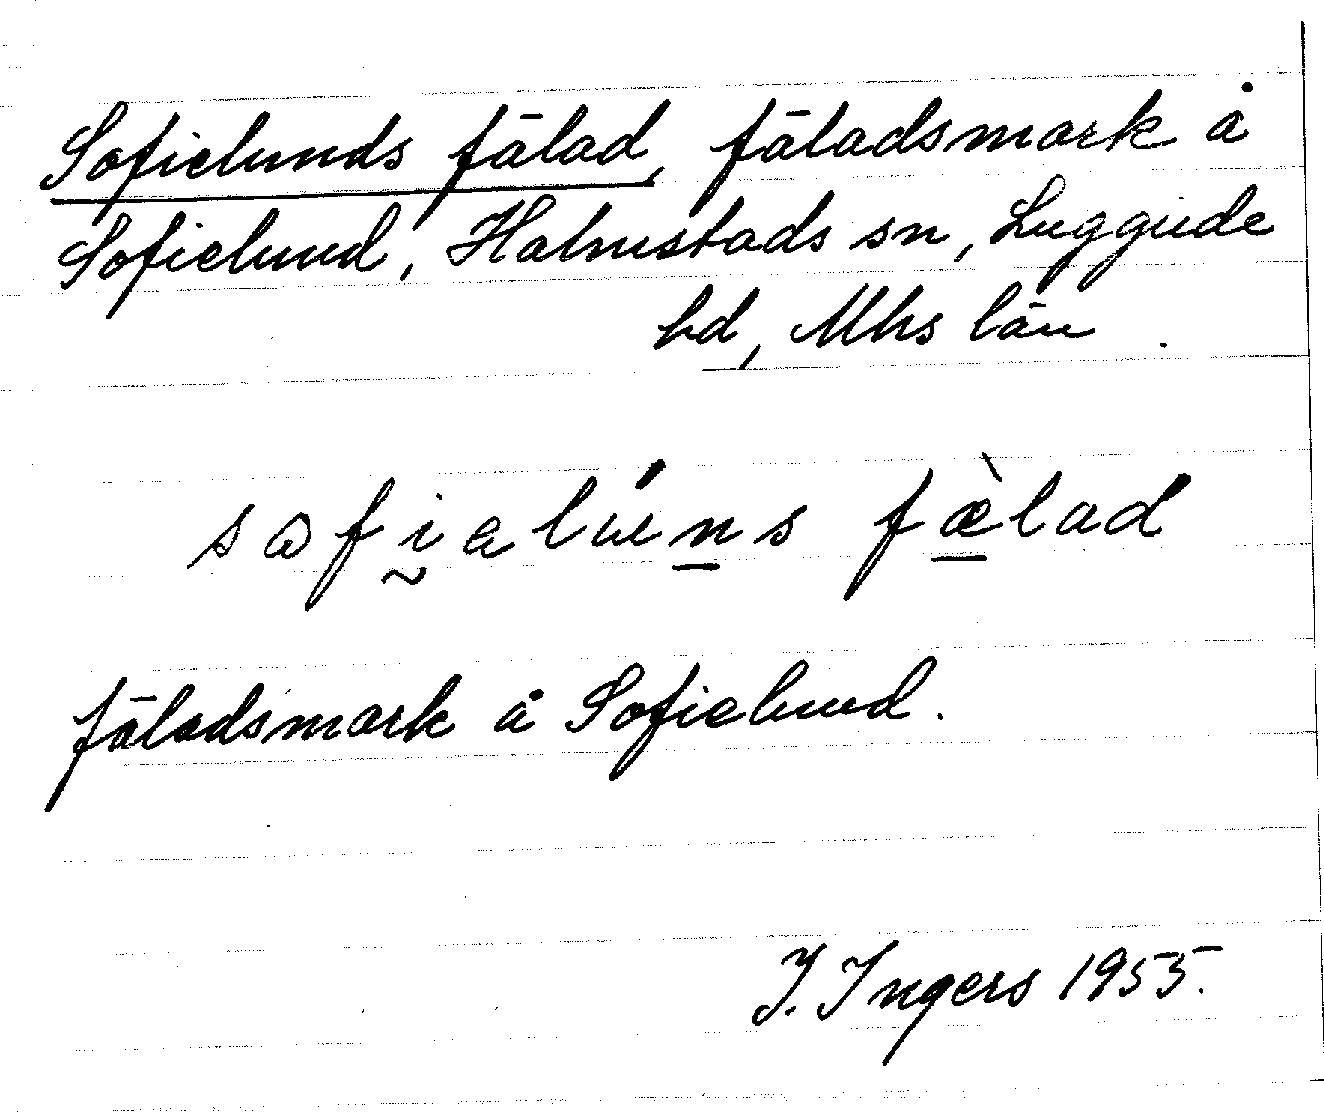 Sofielunds fälad, fäladsmark å
Sofielund, Halmstads sn, Luggude
hd, Mhs län.
sofialúns fæ̀lad
fäladsmark å Sofielund.
I. Ingers 1955.